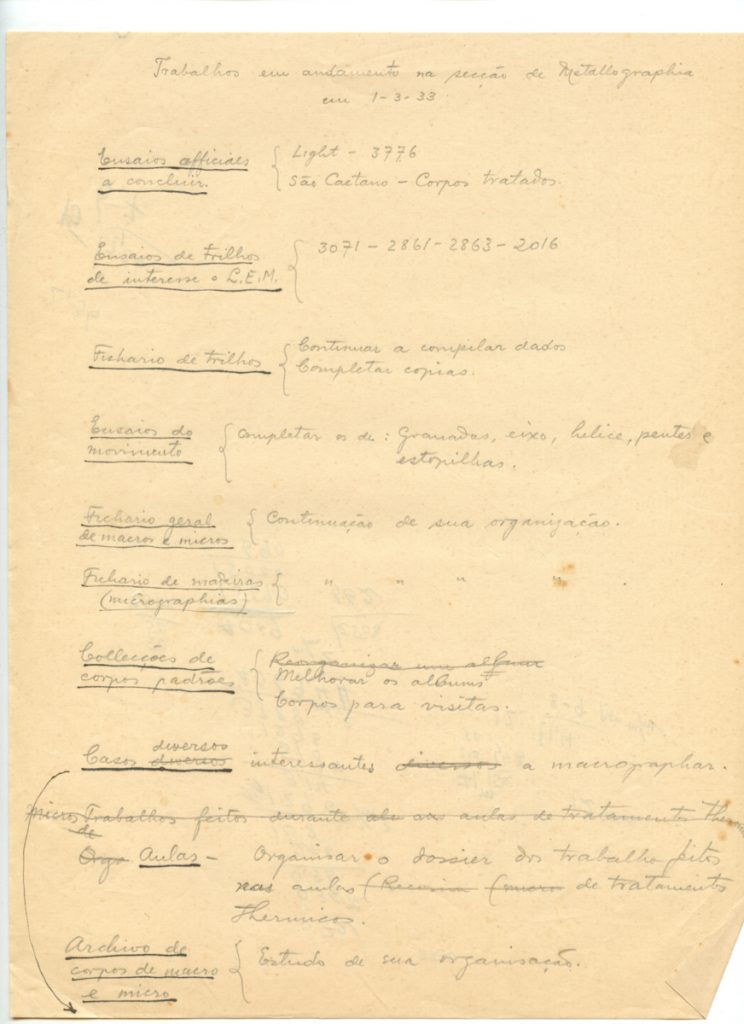 Trabalhos em andamento na secção de Metallographia
em 1-3-33
Ensaios officiaes { Light - 3776
a concluir. São Caetano - Corpos tratados.
Ensaios de Trilhos { 3071 - 2861 - 2863 - 2016
de interesse o L.E.M.
Fichario de trilhos { Continuar a compilar dados
Completar copias.
Ensaios do { Completar os de: Granadas, eixo, helice, pentes e
movimento estopilhas.
Fichario geral { Continuação de sua organização.
de macros e micros
Fichario de madeiras { " " " " .
(micrographias)
Collecções de { Reorganizar um album
corpos padrões Melhorar os albums
Corpos para visitas.
diversos
Casos diversos interessantes diversos a macrographar.
Micros Trabalhos feitos durante as aulas de tratamentos
de
Orga Aulas - Organisar o dossier dos trabalho feitos
nas aulas (micro de tratamentos
thermicos.
Archivo de { Estudo de sua organisação.
corpos de macro
e micro